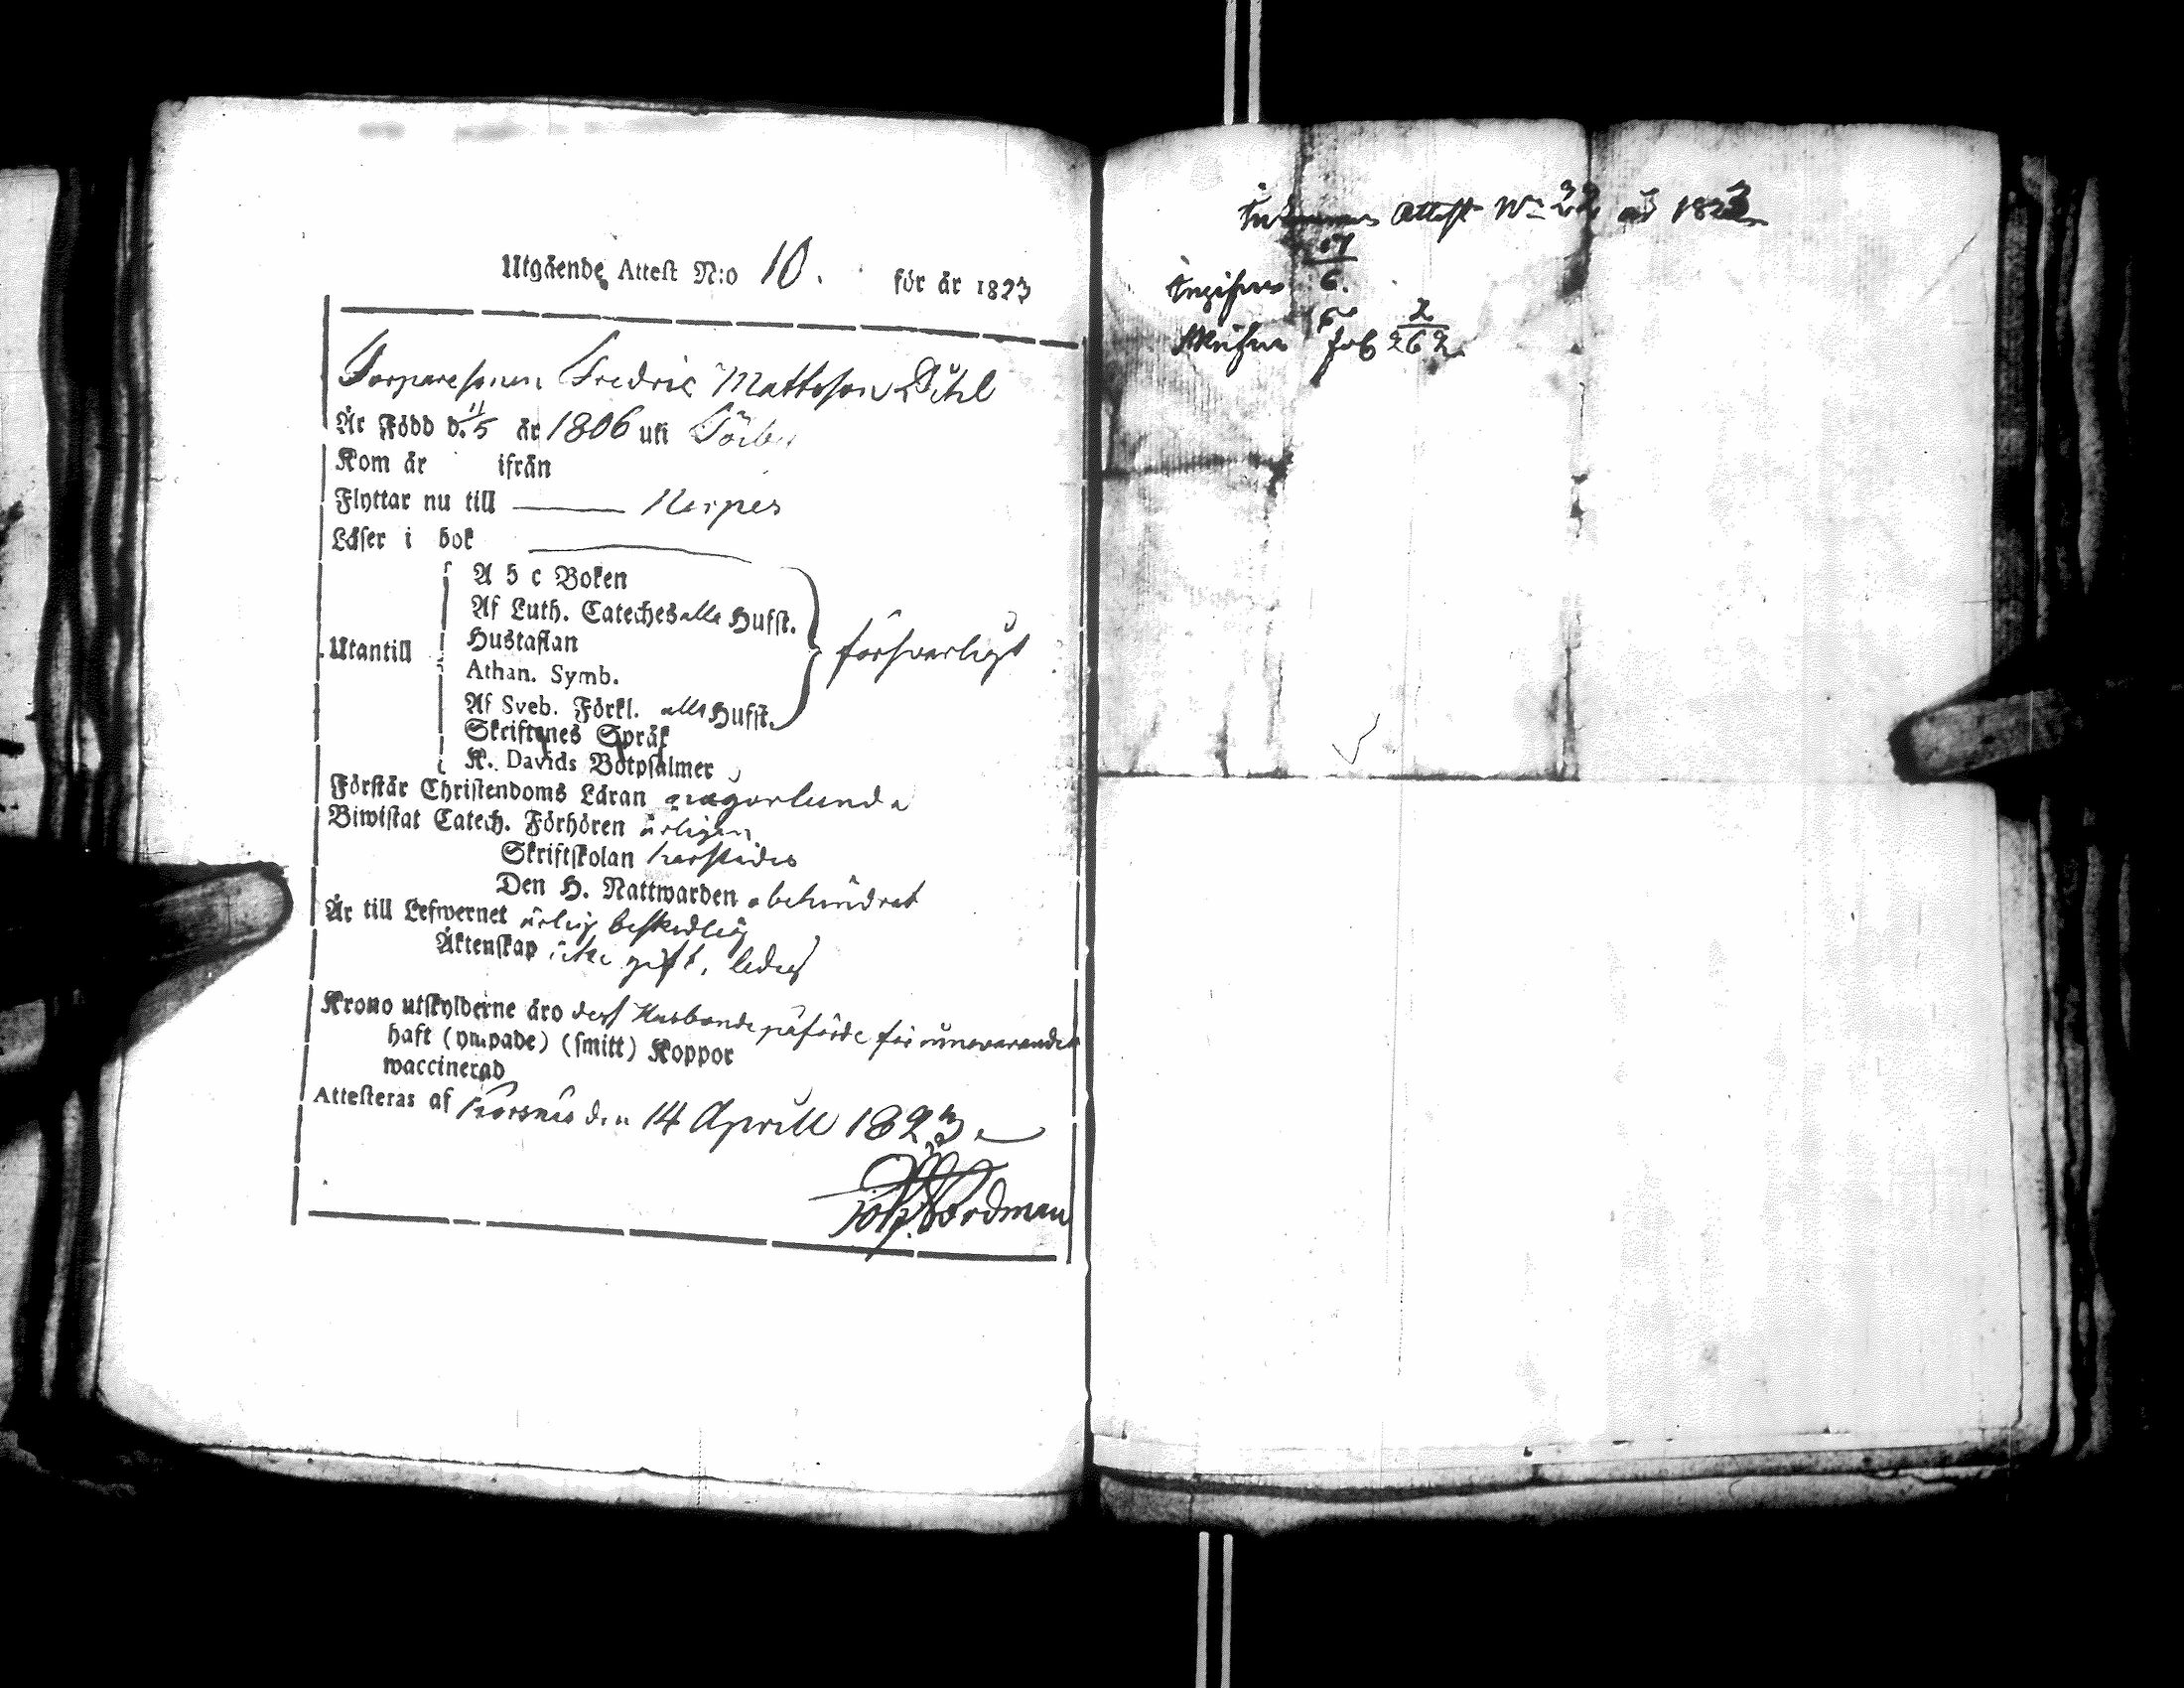 Utgående Attest N:o 10. för år 1823
Torparesonen Fredric Mattsson Dihl
Är Född d. 11/5 år 1806 uti
Kom år ifrån
Flyttar nu till — Nerpes
Läser i bok —
Utantill
A b c Boken
Af Luth. Cateches alla Hufst.
Hustaflan
Athan. Symb.
Af Sveb. Förkl. alla Hufst.
försvarligt
Skriftenes Språk
K. Davids Botpsalmer
Förstår Christendoms Läran någorlunda
Biwistat Catech. Förhören årligen
Skriftskolan härstädes
Den H. Nattwarden obehindrat
Är till Lefwernet ärlig beskedlig
Äktenskap icke gift, ledig
Krono utskylderne äro dess Husbonde påförde för innevarande
haft (ympade) (smitt) Koppor
waccinerad
Attesteras af Korsnäs den 14 Aprill 1823
Joh. Nordman
Attest No 32 år 1823
17/6.
fol 262